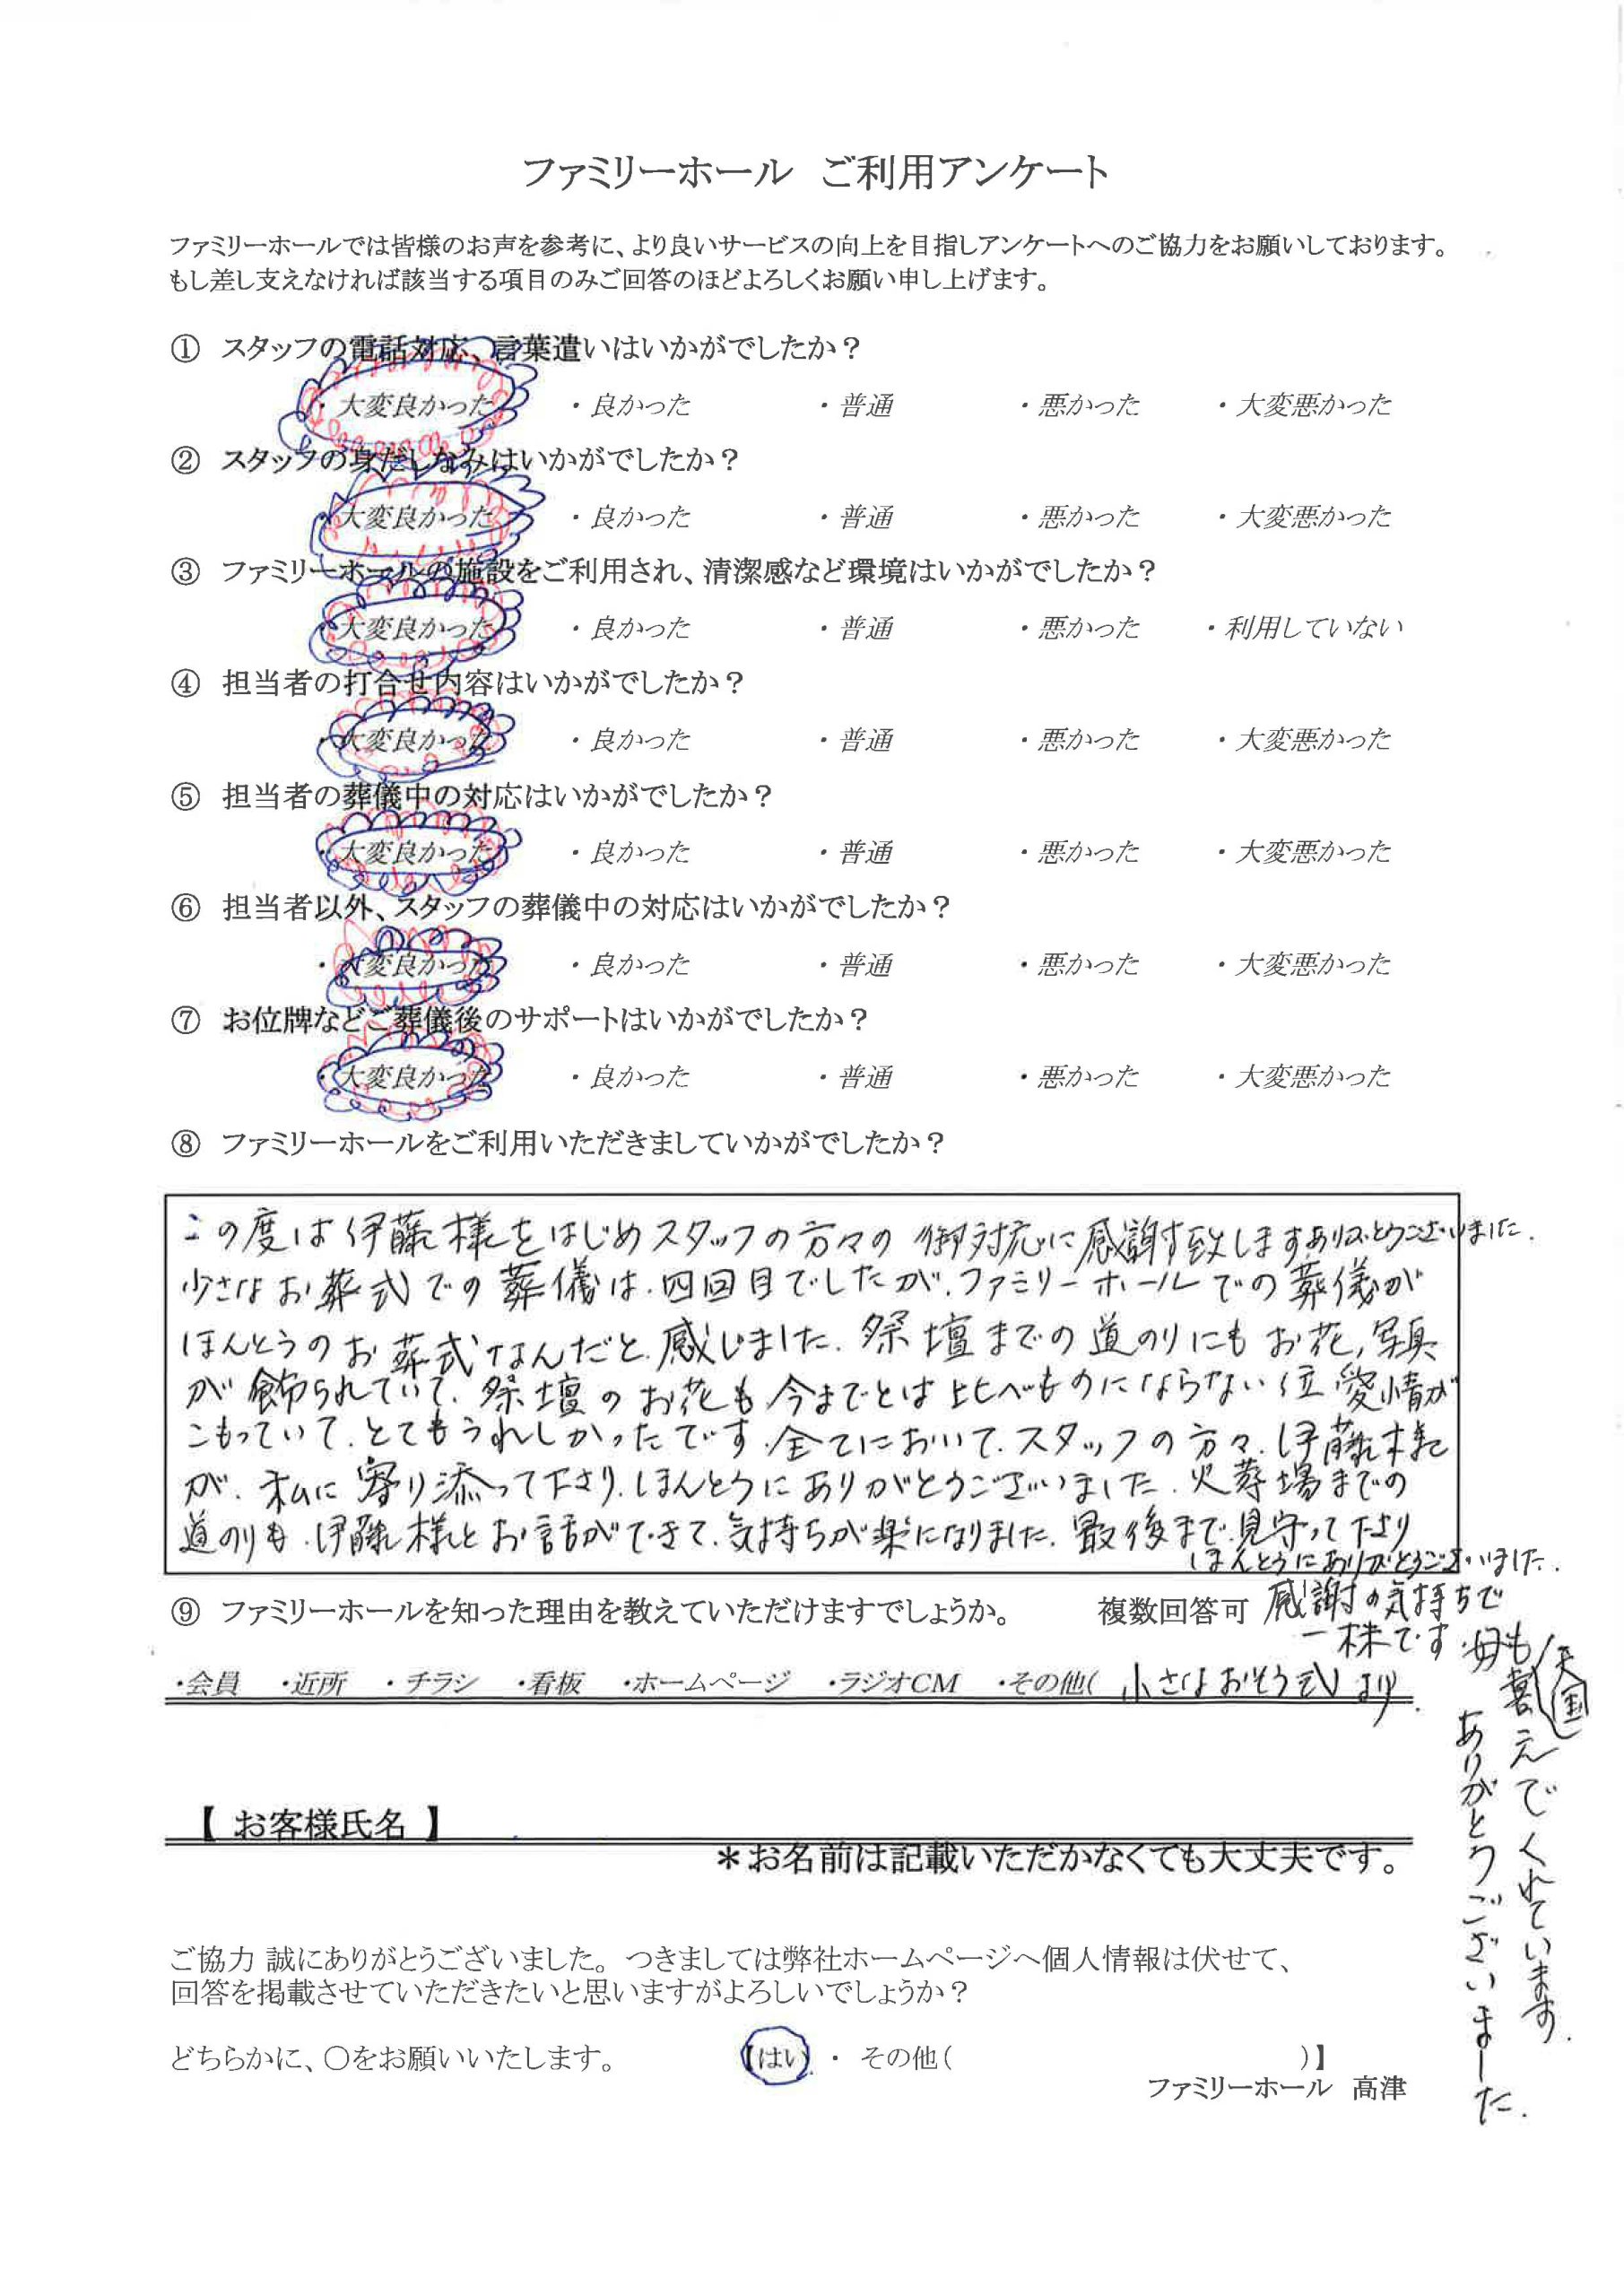 ファミリーホール ご利用アンケート
ファミリーホールでは皆様のお声を参考に、より良いサービスの向上を目指しアンケートへのご協力をお願いしております。
もし差し支えなければ該当する項目のみご回答のほどよろしくお願い申し上げます。
① スタッフの電話対応、言葉遣いはいかがでしたか？
・大変良かった ・良かった ・普通 ・悪かった ・大変悪かった
② スタッフの身だしなみはいかがでしたか？
・大変良かった ・良かった ・普通 ・悪かった ・大変悪かった
③ ファミリーホールの施設をご利用され、清潔感など環境はいかがでしたか？
・大変良かった ・良かった ・普通 ・悪かった ・利用していない
④ 担当者の打合せ内容はいかがでしたか？
・大変良かった ・良かった ・普通 ・悪かった ・大変悪かった
⑤ 担当者の葬儀中の対応はいかがでしたか？
・大変良かった ・良かった ・普通 ・悪かった ・大変悪かった
⑥ 担当者以外、スタッフの葬儀中の対応はいかがでしたか？
・大変良かった ・良かった ・普通 ・悪かった ・大変悪かった
⑦ お位牌などご葬儀後のサポートはいかがでしたか？
・大変良かった ・良かった ・普通 ・悪かった ・大変悪かった
⑧ ファミリーホールをご利用いただきましていかがでしたか？
この度は伊藤様をはじめスタッフの方々の御対応に感謝致しますありがとうございました.
少さなお葬式での葬儀は.四回目でしたが.ファミリーホールでの葬儀が
ほんとうのお葬式なんだと.感じました.祭壇までの道のりにもお花,写真
が飾られていて.祭壇のお花も今までとは比べものにならない位,愛情が
こもっていて.とてもうれしかったです.全てにおいて.スタッフの方々.伊藤様
が.私に寄り添って下さり.ほんとうにありがとうございました.火葬場までの
道のりも.伊藤様とお話ができて.気持ちが楽になりました.最後まで.見守って下さり
ほんとうにありがとうございました.
⑨ ファミリーホールを知った理由を教えていただけますでしょうか。 複数回答可
感謝の気持ちで
一杯です.母も天国
喜んでくれています.
ありがとうございました.
・会員 ・近所 ・チラシ ・看板 ・ホームページ ・ラジオCM ・その他( 小さなおそう式より.
【 お客様氏名 】
＊お名前は記載いただかなくても大丈夫です。
ご協力 誠にありがとうございました。つきましては弊社ホームページへ個人情報は伏せて、
回答を掲載させていただきたいと思いますがよろしいでしょうか？
どちらかに、〇をお願いいたします。 【はい ・ その他( )】
ファミリーホール 高津